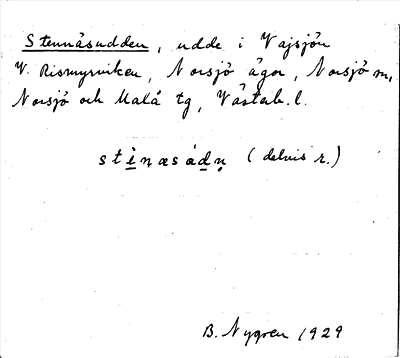 Stennäsudden, udde i Vajsjön
V. Rismyrviken, Norsjö ägor, Norsjö sn,
Norsjö och Malå tg, Västerb. l.
stịṇæsád̲ṇ (delvis r.)
B. Nygren 1929